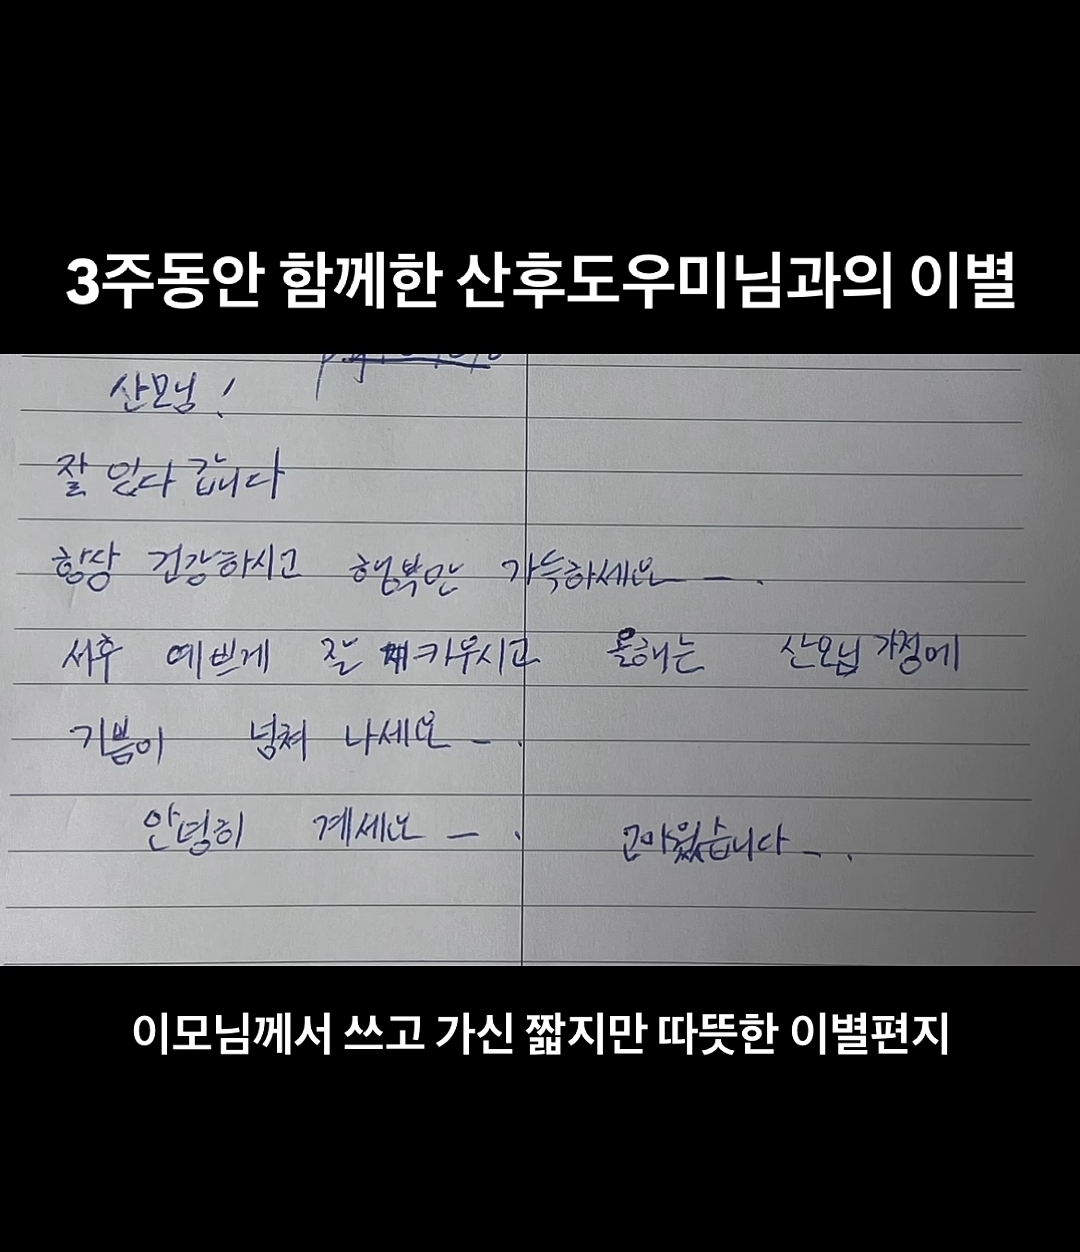 3주동안 함께한 산후도우미님과의 이별
산모님!
잘 있다 갑니다
항상 건강하시고 행복만 가득하세요 - .
서후 예쁘게 잘 키우시고 올해는 산모님 가정에
기쁨이 넘쳐 나세요 - .
안녕히 계세요 - . 고마웠습니다 - .
이모님께서 쓰고 가신 짧지만 따뜻한 이별편지